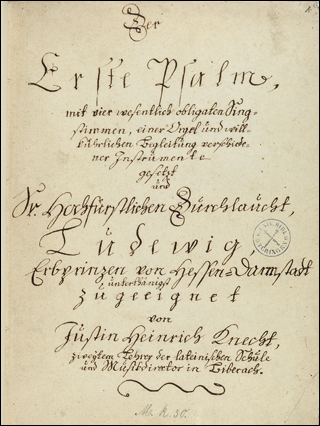 Der
Erste Psalm,
mit vier wesentlich obligaten Sing-
stimmen, einer Orgel und will-
kührlichen Begleitung verschiede-
ner Instrumente
gesetzt
und
Sr. Hochfürstlichen Durchlaucht,
Ludewig,
Erbprinzen von Hessen-Darmstadt
unterthänigst
zugeeignet
von
Justin Heinrich Knecht,
zweytem Lehrer der lateinischen Schule
und Musikdirector in Biberach.